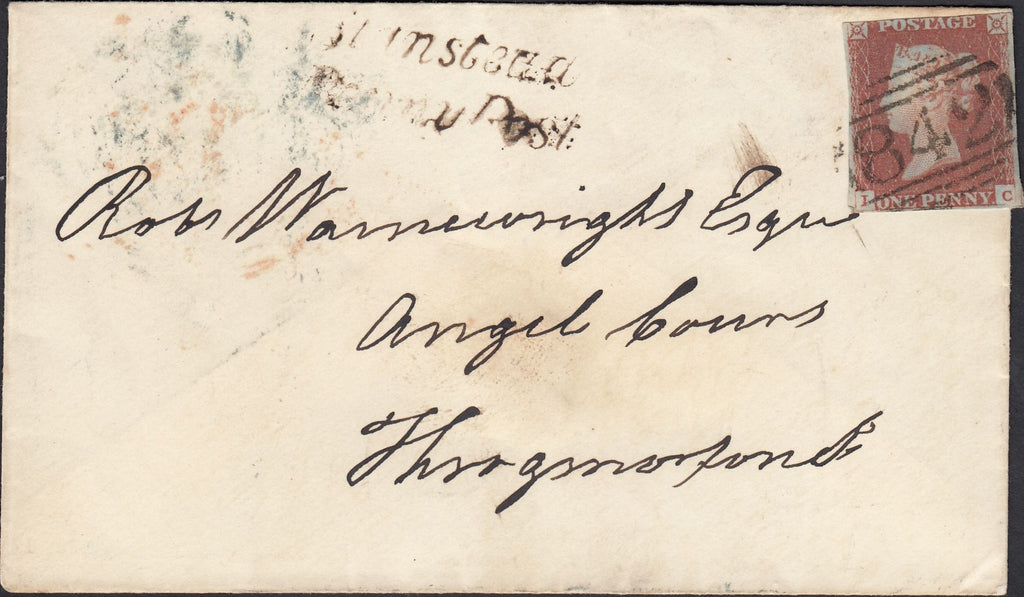 Stanstead
Penny Post
POSTAGE
842
ONE PENNY
C
Robt Warnewright Esqre
Angel Court
Throgmorton St